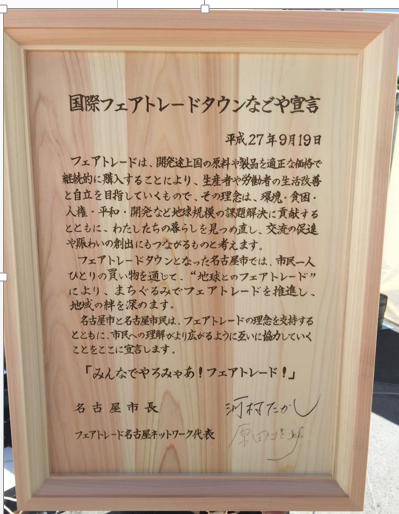 国際フェアトレードタウンなごや宣言
平成27年9月19日
フェアトレードは、開発途上国の原料や製品を適正な価格で
継続的に購入することにより、生産者や労働者の生活改善
と自立を目指していくもので、その理念は、環境・貧困・
人権・平和・開発など地球規模の課題解決に貢献する
とともに、わたしたちの暮らしを見つめ直し、交流の促進
や賑わいの創出にもつながるものと考えます。
フェアトレードタウンとなった名古屋市では、市民一人
ひとりの買い物を通して、“地球とのフェアトレード”
により、まちぐるみでフェアトレードを推進し、
地域の絆を深めます。
名古屋市と名古屋市民は、フェアトレードの理念を支持する
とともに、市民への理解がより広がるように互いに協力していく
ことをここに宣言します。
「みんなでやろみゃあ!フェアトレード!」
名古屋市長 河村たかし
フェアトレード名古屋ネットワーク代表 原田